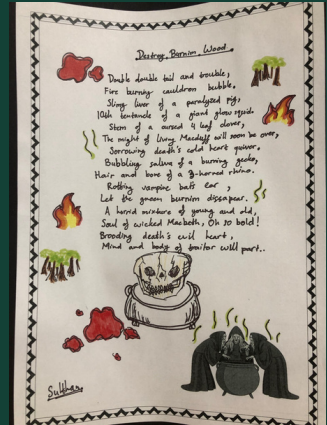 Destroy Burnim Wood
Double double toil and trouble,
Fire burning cauldron bubble,
Sling liver of a paralyzed pig,
10th tentacle of a giant glow squid
Stem of a cursed 4 leaf clover,
The might of living Macduff will soon be over,
Sorrowing death's cold heart quiver,
Bubbling saliva of a burning gecko,
Hair and bone of a 3-horned rhino.
Rotting vampire bats ear,
Let the green burnim dissapear.
A horrid mixture of young and old,
Soul of wicked Macbeth, Oh so bold!
Brooding death's evil heart,
Mind and body of traitor will part..